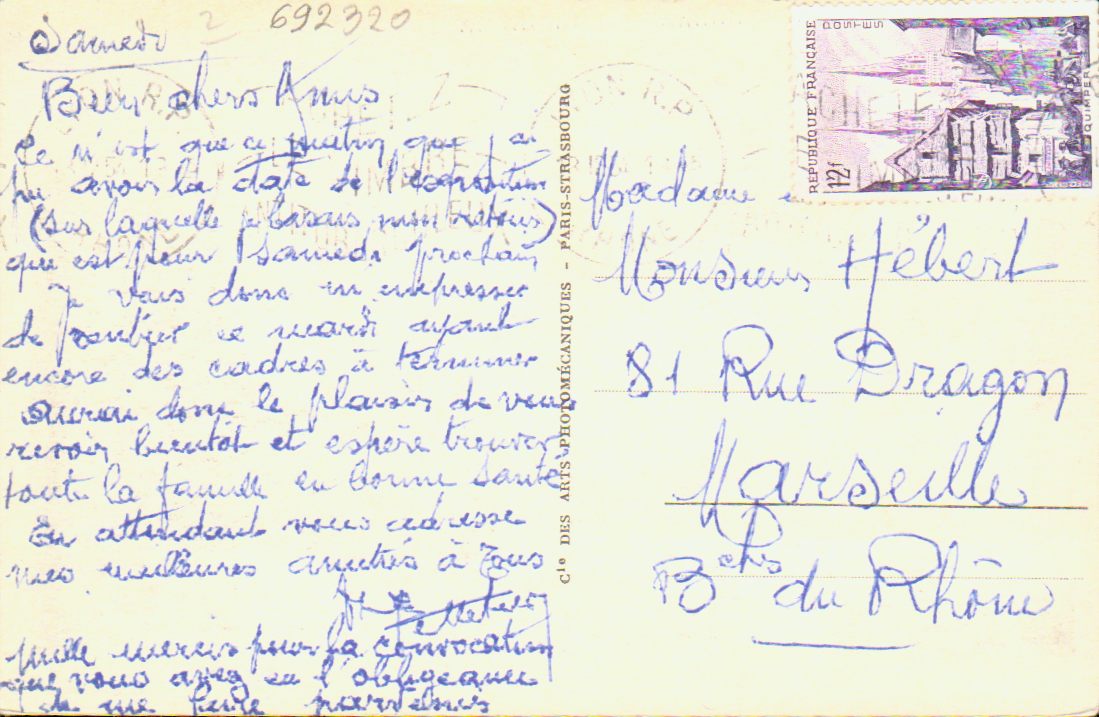 692320
Samedi
Bien chers Amis
Ce n'est que ce matin que j'ai
pu avoir la date de l'exposition
(sur laquelle je basais mon retour)
qui est pour samedi prochain
Je vais donc m'empresser
de rentrer ce mardi ayant
encore des cadres à terminer
aurai donc le plaisir de vous
revoir bientôt et espère trouver
toute la famille en bonne santé
En attendant vous adresse
mes meilleures amitiés à Tous
mille mercis pour la convocation
que vous avez eu l'obligeance
de me faire parvenir
Cie DES ARTS PHOTOMÉCANIQUES - PARIS-STRASBOURG
RÉPUBLIQUE FRANÇAISE
POSTES
12f
QUIMPER
Madame
Monsieur Hébert
81 Rue Dragon
Marseille
Bches du Rhône